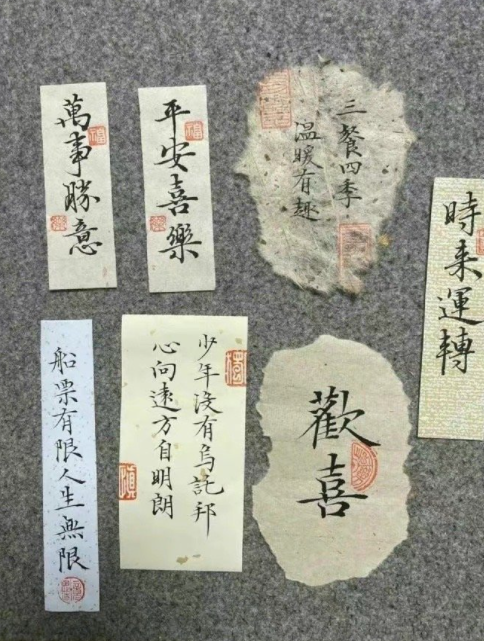 萬事勝意
平安喜樂
三餐四季
温暖有趣
時来運轉
船票有限人生無限
少年没有烏託邦
心向遠方自明朗
歡喜